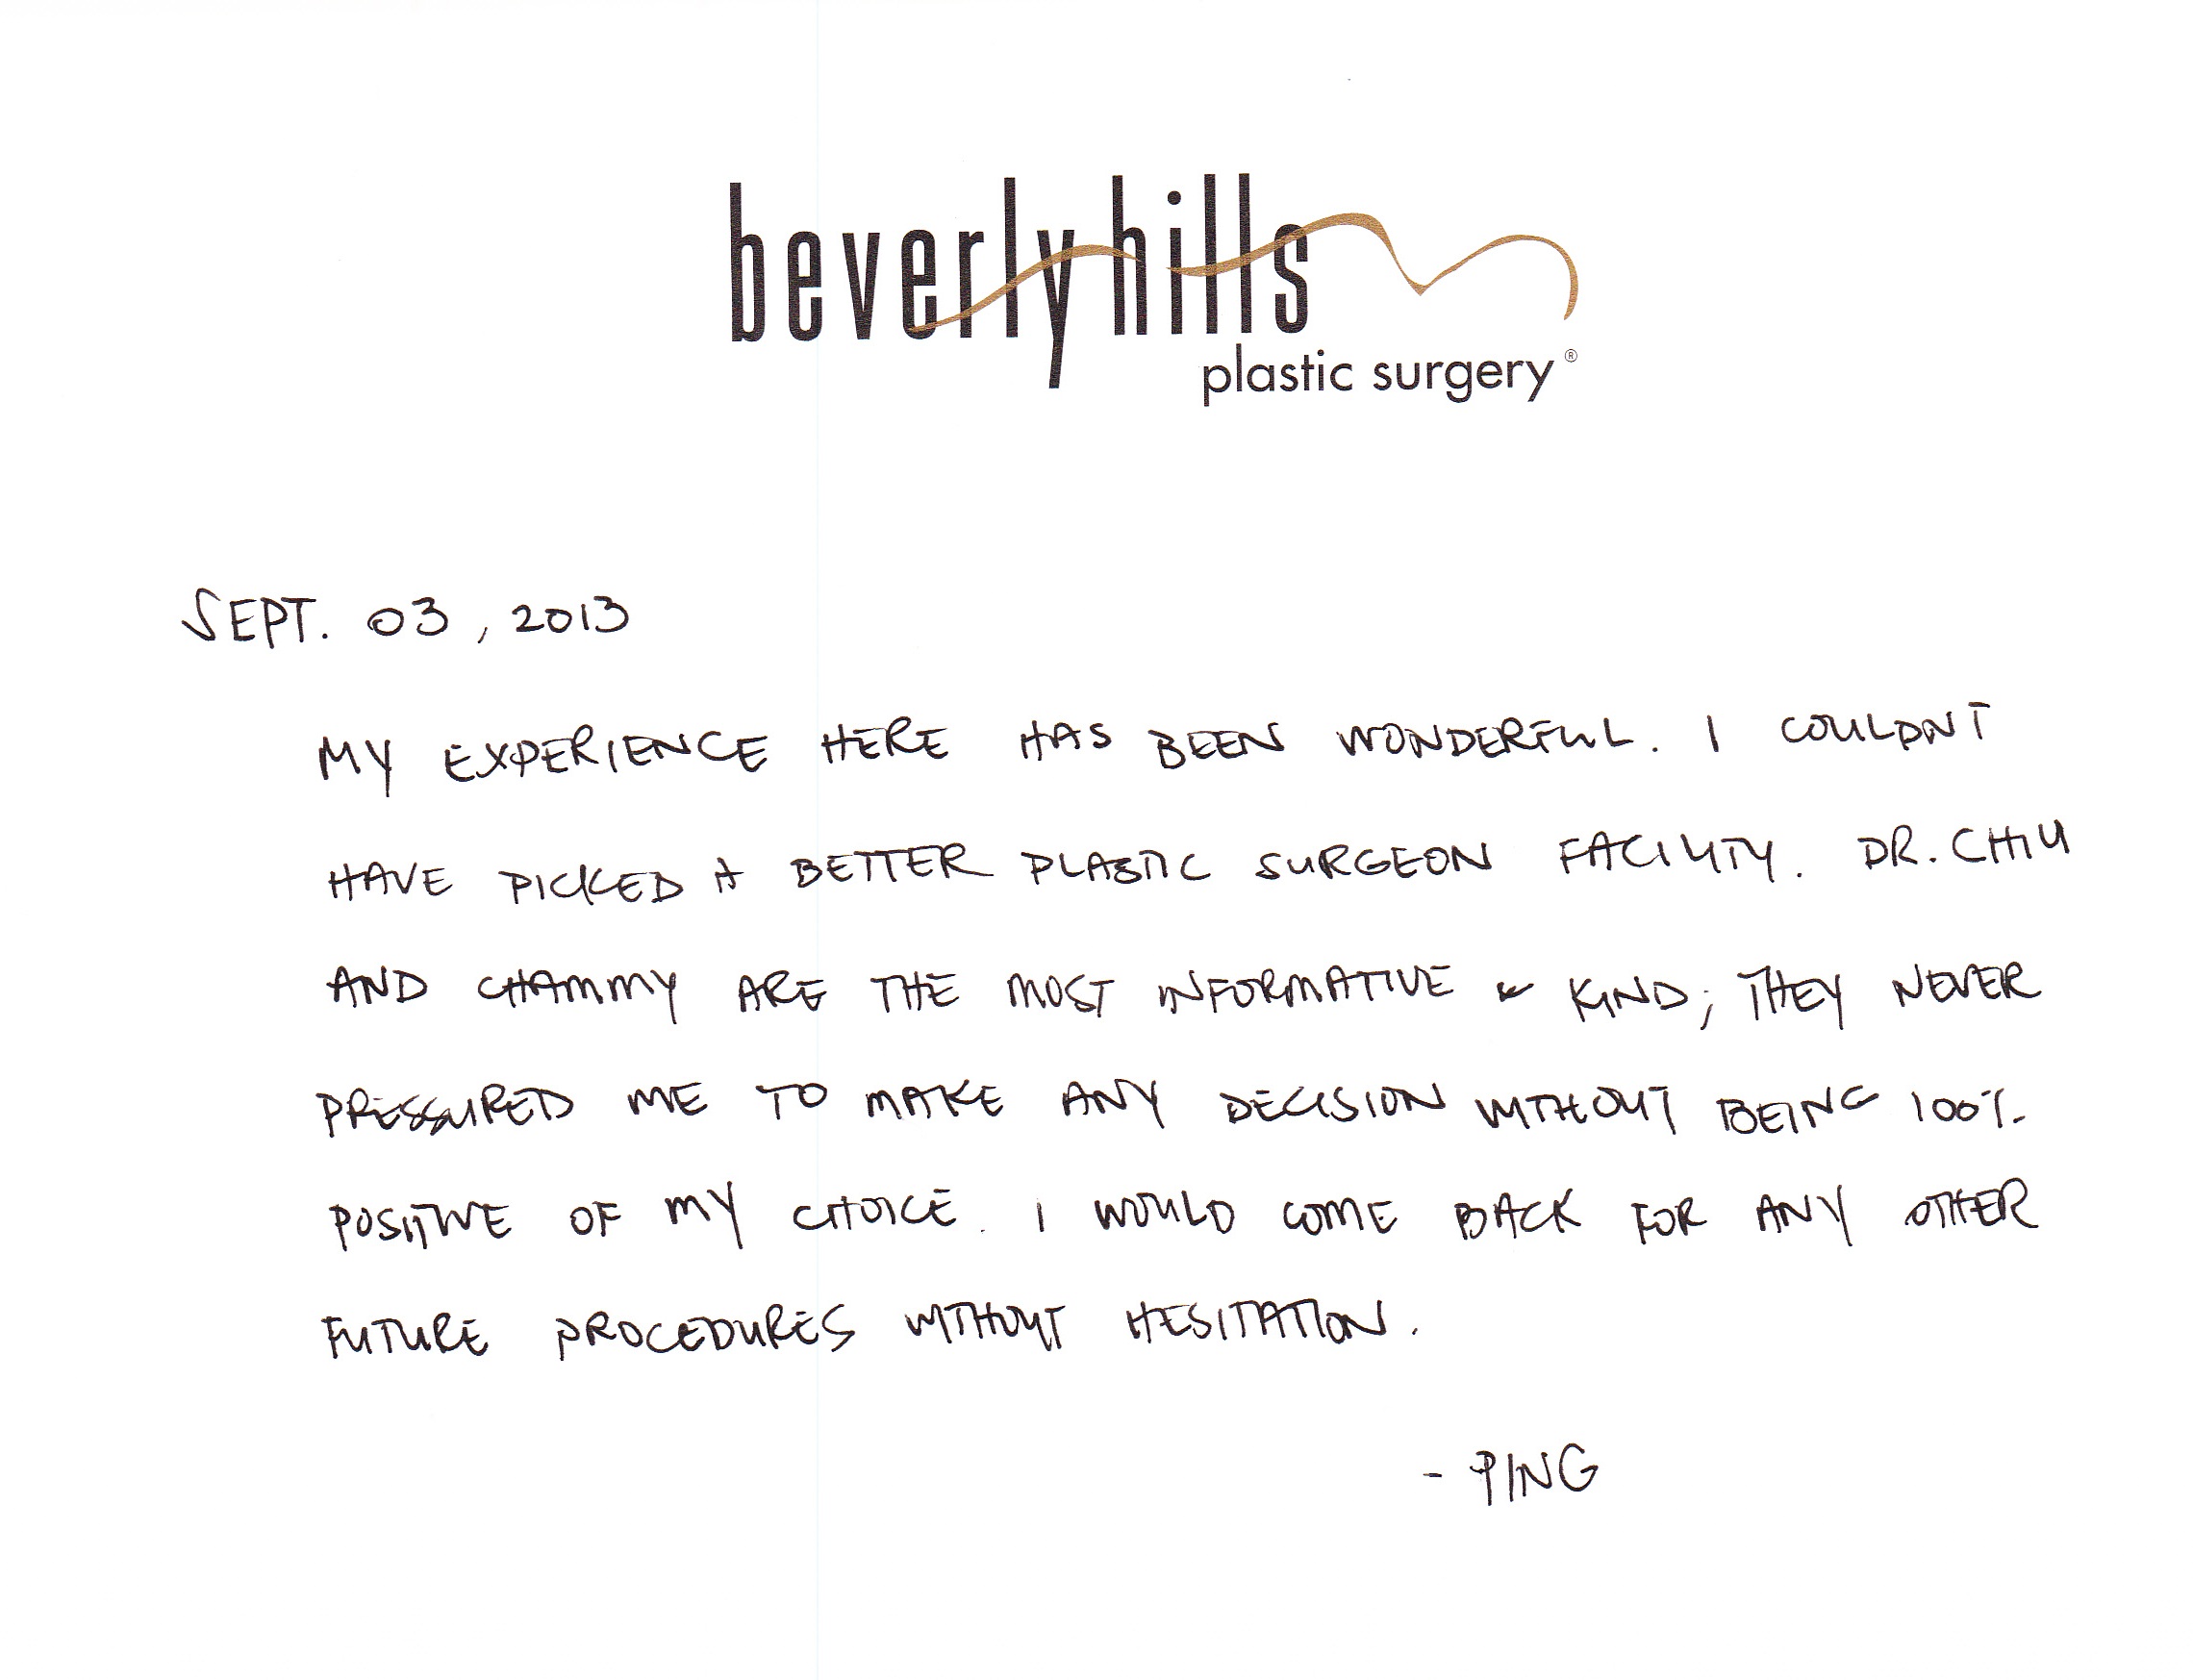 beverly hills
plastic surgery®
SEPT. 03, 2013
MY EXPERIENCE HERE HAS BEEN WONDERFUL. I COULDNT
HAVE PICKED A BETTER PLASTIC SURGEON FACILITY. DR. CHIU
AND CHAMMY ARE THE MOST INFORMATIVE & KIND; THEY NEVER
PRESSURED ME TO MAKE ANY DECISION WITHOUT BEING 100%
POSITIVE OF MY CHOICE. I WOULD COME BACK FOR ANY OTHER
FUTURE PROCEDURES WITHOUT HESITATION.
- PING